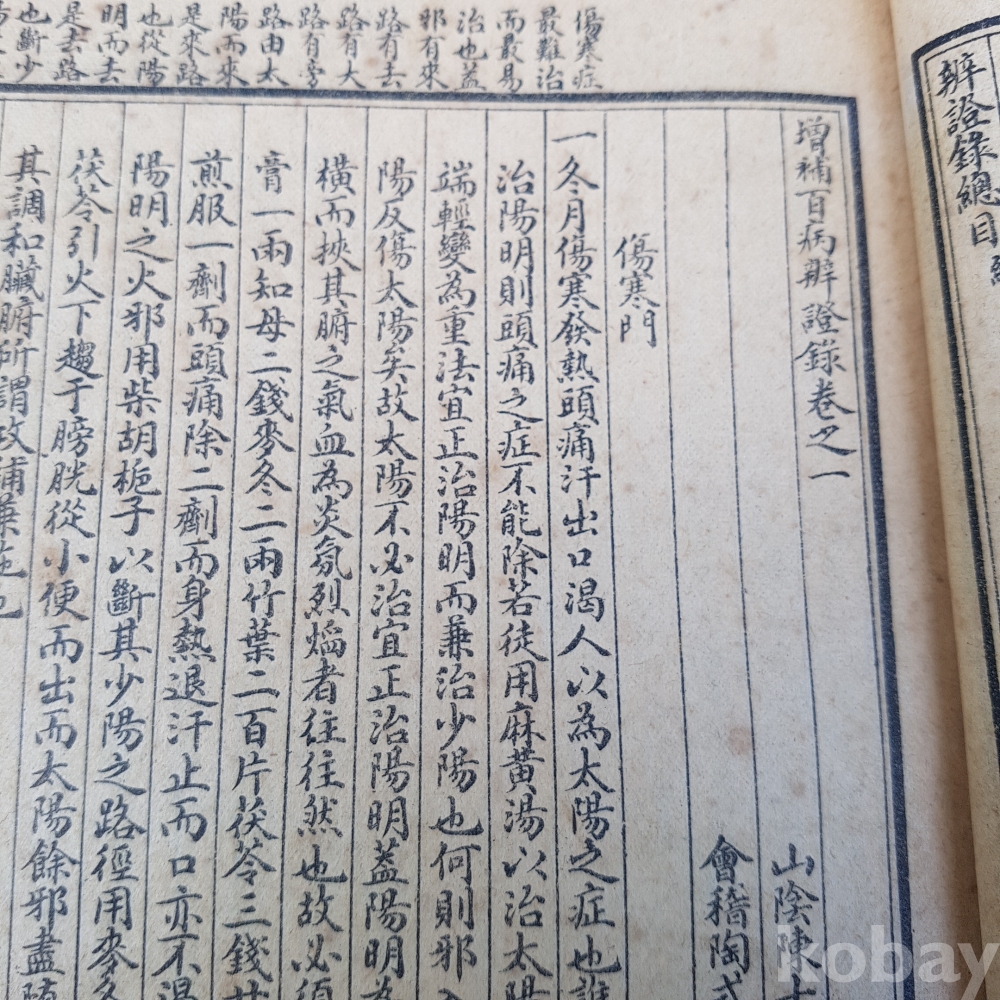 辨證錄總目
傷寒症
最難治
而最易
治也蓋
邪有來
路有去
路有大
路有旁
路由太
陽而來
是來路
也從陽
明而去
是去路
也斷少
增補百病辨證錄卷之一
山陰陳士
會稽陶式
傷寒門
一冬月傷寒發熱頭痛汗出口渴人以為太陽之症也誰
治陽明則頭痛之症不能除若徒用麻黃湯以治太陽
端輕變為重法宜正治陽明而兼治少陽也何則邪入
陽反傷太陽矣故太陽不必治宜正治陽明蓋陽明為
橫而挾其腑之氣血為炎氛烈熖者往往然也故必須
膏一兩知母二錢麥冬二兩竹葉二百片茯苓三錢甘
煎服一劑而頭痛除二劑而身熱退汗止而口亦不渴
陽明之火邪用柴胡梔子以斷其少陽之路徑用麥冬
茯苓引火下趨于膀胱從小便而出而太陽餘邪盡隨
其調和臟腑所謂攻補兼施也
kobay